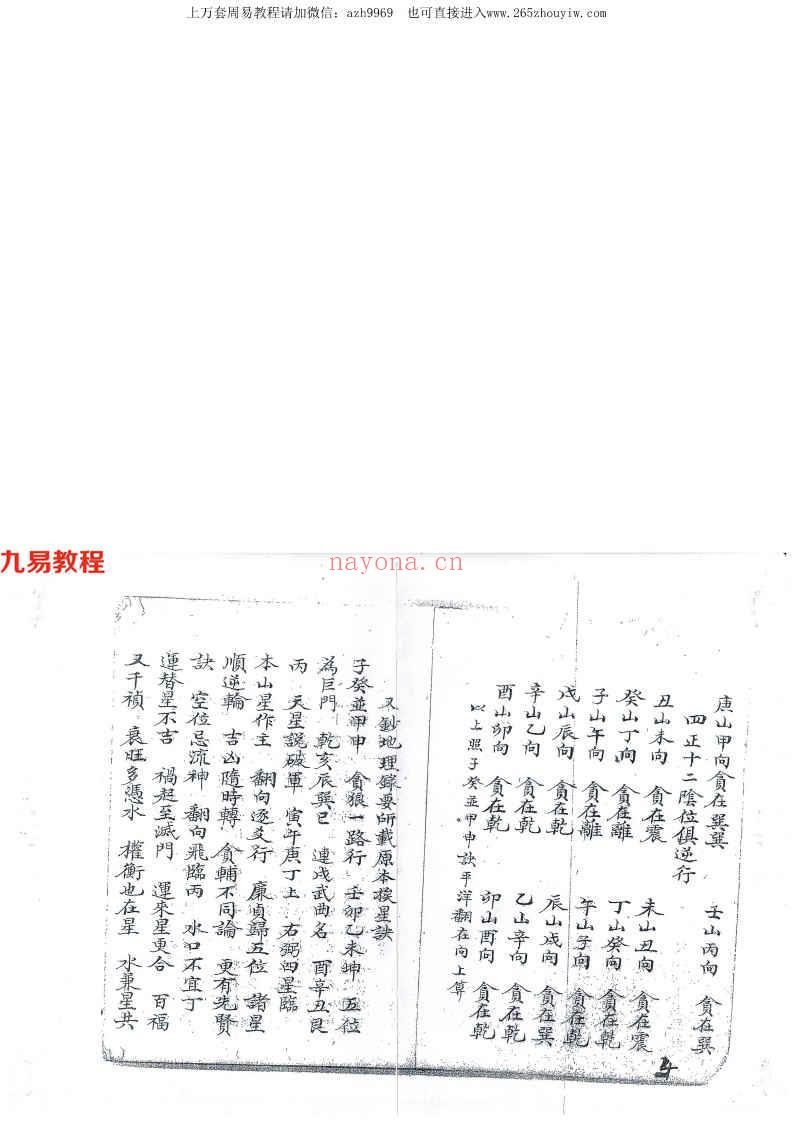 上万套周易教程请加微信：azh9969　也可直接进入www.265zhouyiw.com
九易教程
nayona.cn
庚山甲向貪在巽巽　壬山丙向　貪在巽
四正十二陰位俱逆行
丑山未向　貪在震　未山丑向　貪在震
癸山丁向　貪在離　丁山癸向　貪在乾
子山午向　貪在離　午山子向　貪在乾
戌山辰向　貪在乾　辰山戌向　貪在巽
辛山乙向　貪在乾　乙山辛向　貪在乾
酉山卯向　貪在乾　卯山酉向　貪在乾
以上照子癸並甲申訣平洋翻在向上算
又鈔地理錄要所載原本挨星訣
子癸並甲申　貪狼一路行　壬卯乙未坤　五位
為巨門　乾亥辰巽巳　連戌武曲名　酉辛丑艮
丙　天星說破軍　寅午庚丁上　右弼四星臨
本山星作主　翻向逐爻行　廉貞歸五位　諸星
順逆輪　吉凶隨時轉　貪輔不同論　更有先賢
訣　空位忌流神　翻向飛臨丙　水口不宜丁
運替星不吉　禍起至滅門　運來星更合　百福
又千禎　衰旺多憑水　權衡也在星　水兼星共